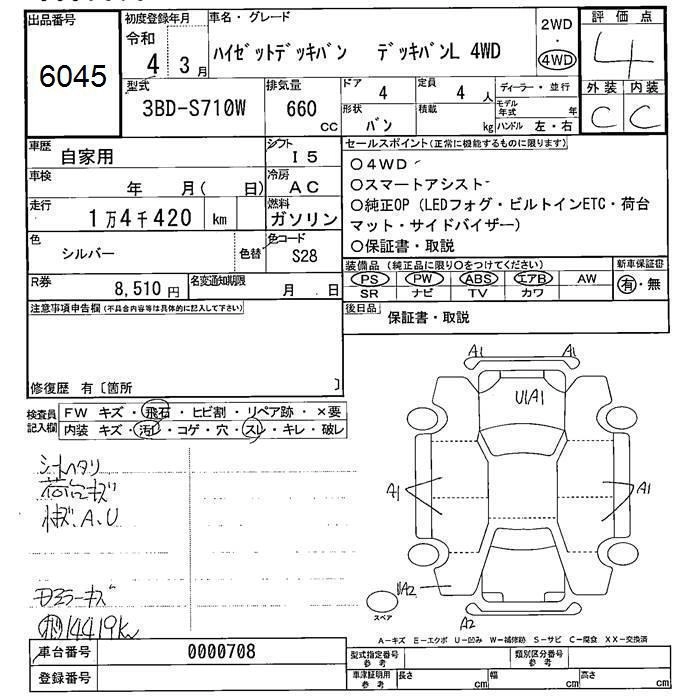 出品番号
6045
初度登録年月
令和
4 3月
車名・グレード
ハイゼットデッキバン デッキバンL 4WD
2WD
・
4WD
評価点
4
外装 内装
C C
型式
3BD-S710W
排気量
660
cc
ドア
4
定員
4 人
形状
バン
積載
kg
ディーラー・並行
モデル年式 年
ハンドル 左・右
車歴
自家用
シフト
I5
車検
年 月( 日)
冷房
AC
走行
1万4千420 km
燃料
ガソリン
色
シルバー
色替
色コード
S28
R券
8,510 円
名変通知期限
月 日
セールスポイント(正常に機能するものに限ります)
○4WD
○スマートアシスト
○純正OP(LEDフォグ・ビルトインETC・荷台
マット・サイドバイザー)
○保証書・取説
装備品(純正品に限り○をつけてください)
PS PW ABS エアB AW
SR ナビ TV カワ
新車保証書
有・無
後日品
保証書・取説
注意事項申告欄(不具合内容等は具体的に記入して下さい)
修復歴 有〔箇所 〕
検査員
記入欄
FW キズ・飛石・ヒビ割・リペア跡・×要
内装 キズ・汚レ・コゲ・穴・スレ・キレ・破レ
シートヘタリ
荷台キズ
小キズ、A、U
14419km
A1 A1
U1A1
A1 A1
UA2
A2
スペア
A-キズ E-エクボ U-凹み W-補修跡 S-サビ C-腐食 XX-交換済
車台番号
0000708
登録番号
型式指定番号
参考
類別区分番号
参考
車津証明用
参考
長さ cm
幅 cm
高さ cm